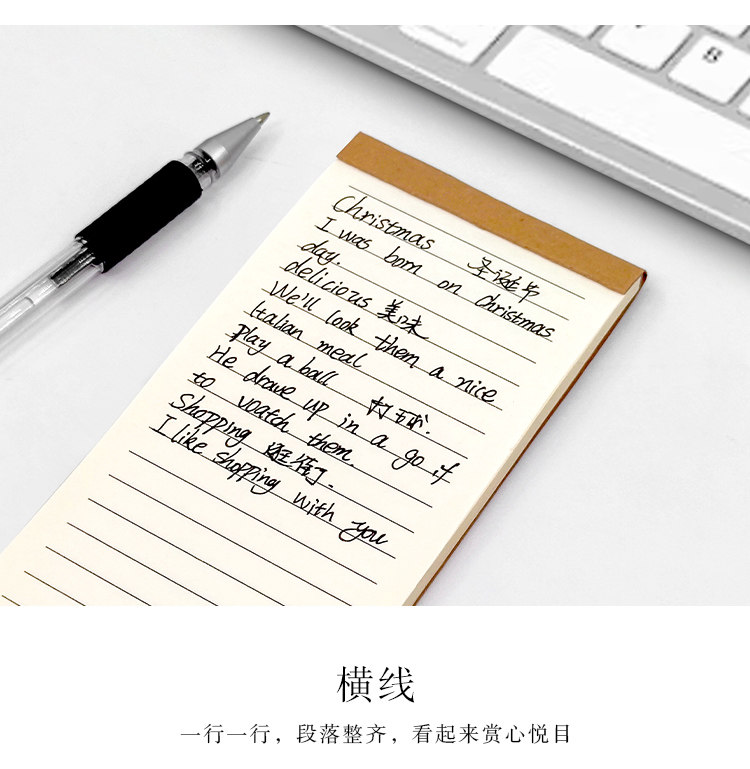 B
Christmas 圣诞节
I was born on Christmas
day.
delicious 美味
We'll look them a nice
Italian meal
Play a ball 打球.
He drave up in a go if
to voatch them.
Shopping 逛街.
I like shopping with you
横线
一行一行，段落整齐，看起来赏心悦目